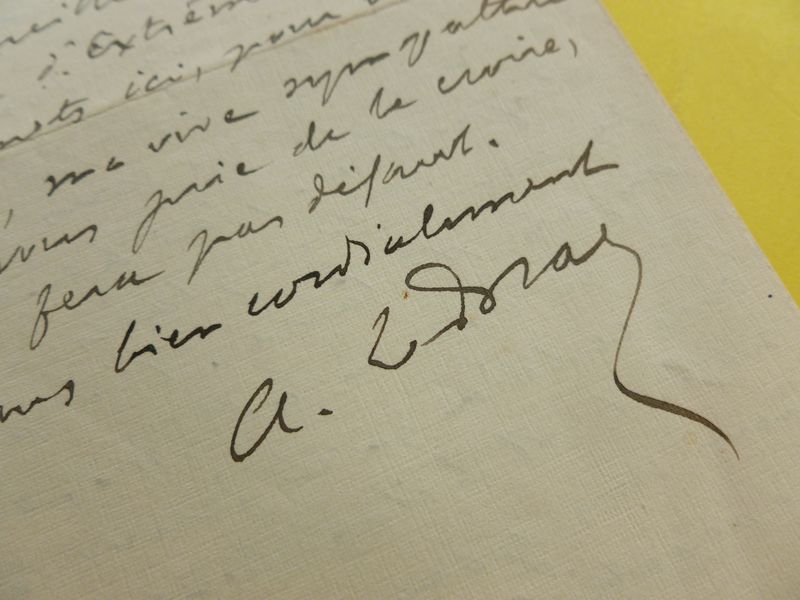 d'Extrêm
mots ici, pour
, ma vive sympathie
vous prie de le croire,
fera pas défaut.
bien cordialement
A.